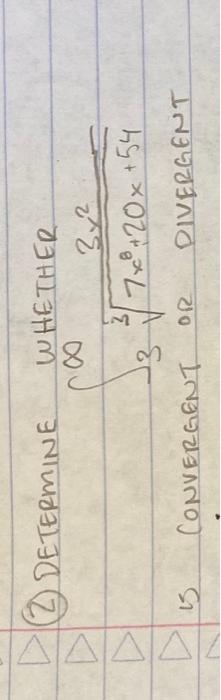 ② DETERMINE WHETHER
∫₃^∞ 3x² / ∛(7x⁸+20x+54)
IS CONVERGENT OR DIVERGENT